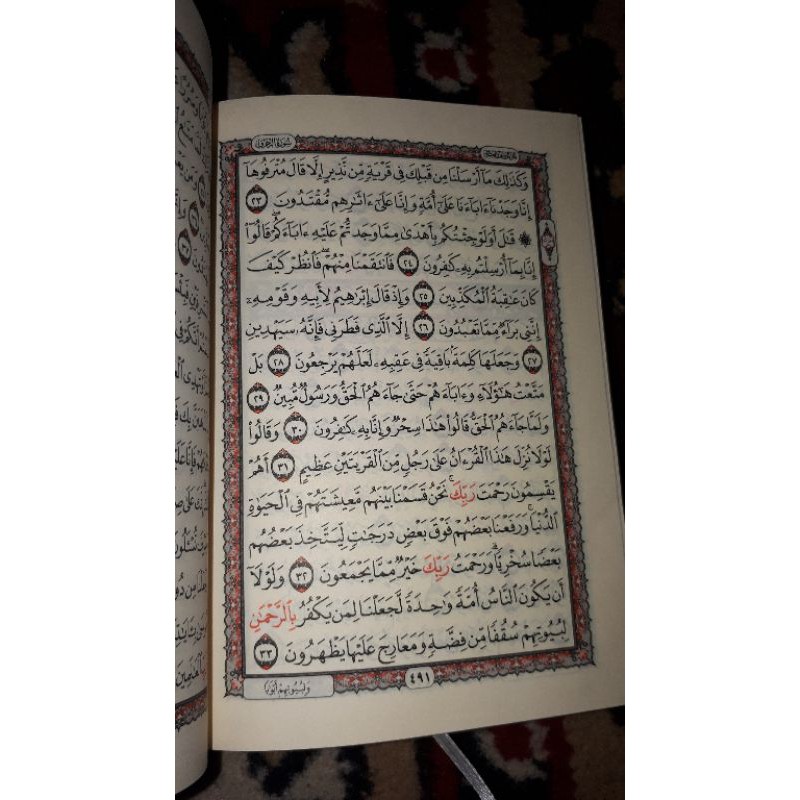 سورة الزخرف
وَكَذَٰلِكَ مَآ أَرْسَلْنَا مِن قَبْلِكَ فِى قَرْيَةٍ مِّن نَّذِيرٍ إِلَّا قَالَ مُتْرَفُوهَآ
إِنَّا وَجَدْنَآ ءَابَآءَنَا عَلَىٰٓ أُمَّةٍ وَإِنَّا عَلَىٰٓ ءَاثَٰرِهِم مُّقْتَدُونَ ٢٣
۞ قَٰلَ أَوَلَوْ جِئْتُكُم بِأَهْدَىٰ مِمَّا وَجَدتُّمْ عَلَيْهِ ءَابَآءَكُمْ قَالُوٓا۟
إِنَّا بِمَآ أُرْسِلْتُم بِهِۦ كَٰفِرُونَ ٢٤ فَٱنتَقَمْنَا مِنْهُمْ فَٱنظُرْ كَيْفَ
كَانَ عَٰقِبَةُ ٱلْمُكَذِّبِينَ ٢٥ وَإِذْ قَالَ إِبْرَٰهِيمُ لِأَبِيهِ وَقَوْمِهِۦٓ
إِنَّنِى بَرَآءٌ مِّمَّا تَعْبُدُونَ ٢٦ إِلَّا ٱلَّذِى فَطَرَنِى فَإِنَّهُۥ سَيَهْدِينِ
٢٧ وَجَعَلَهَا كَلِمَةًۢ بَاقِيَةً فِى عَقِبِهِۦ لَعَلَّهُمْ يَرْجِعُونَ ٢٨ بَلْ
مَتَّعْتُ هَٰٓؤُلَآءِ وَءَابَآءَهُمْ حَتَّىٰ جَآءَهُمُ ٱلْحَقُّ وَرَسُولٌ مُّبِينٌ ٢٩
وَلَمَّا جَآءَهُمُ ٱلْحَقُّ قَالُوا۟ هَٰذَا سِحْرٌ وَإِنَّا بِهِۦ كَٰفِرُونَ ٣٠ وَقَالُوا۟
لَوْلَا نُزِّلَ هَٰذَا ٱلْقُرْءَانُ عَلَىٰ رَجُلٍ مِّنَ ٱلْقَرْيَتَيْنِ عَظِيمٍ ٣١ أَهُمْ
يَقْسِمُونَ رَحْمَتَ رَبِّكَ ۚ نَحْنُ قَسَمْنَا بَيْنَهُم مَّعِيشَتَهُمْ فِى ٱلْحَيَوٰةِ
ٱلدُّنْيَا ۚ وَرَفَعْنَا بَعْضَهُمْ فَوْقَ بَعْضٍ دَرَجَٰتٍ لِّيَتَّخِذَ بَعْضُهُم
بَعْضًا سُخْرِيًّا ۗ وَرَحْمَتُ رَبِّكَ خَيْرٌ مِّمَّا يَجْمَعُونَ ٣٢ وَلَوْلَآ
أَن يَكُونَ ٱلنَّاسُ أُمَّةً وَٰحِدَةً لَّجَعَلْنَا لِمَن يَكْفُرُ بِٱلرَّحْمَٰنِ
لِبُيُوتِهِمْ سُقُفًا مِّن فِضَّةٍ وَمَعَارِجَ عَلَيْهَا يَظْهَرُونَ ٣٣
٤٩١
وَلِبُيُوتِهِمْ أَبْوَٰبًا